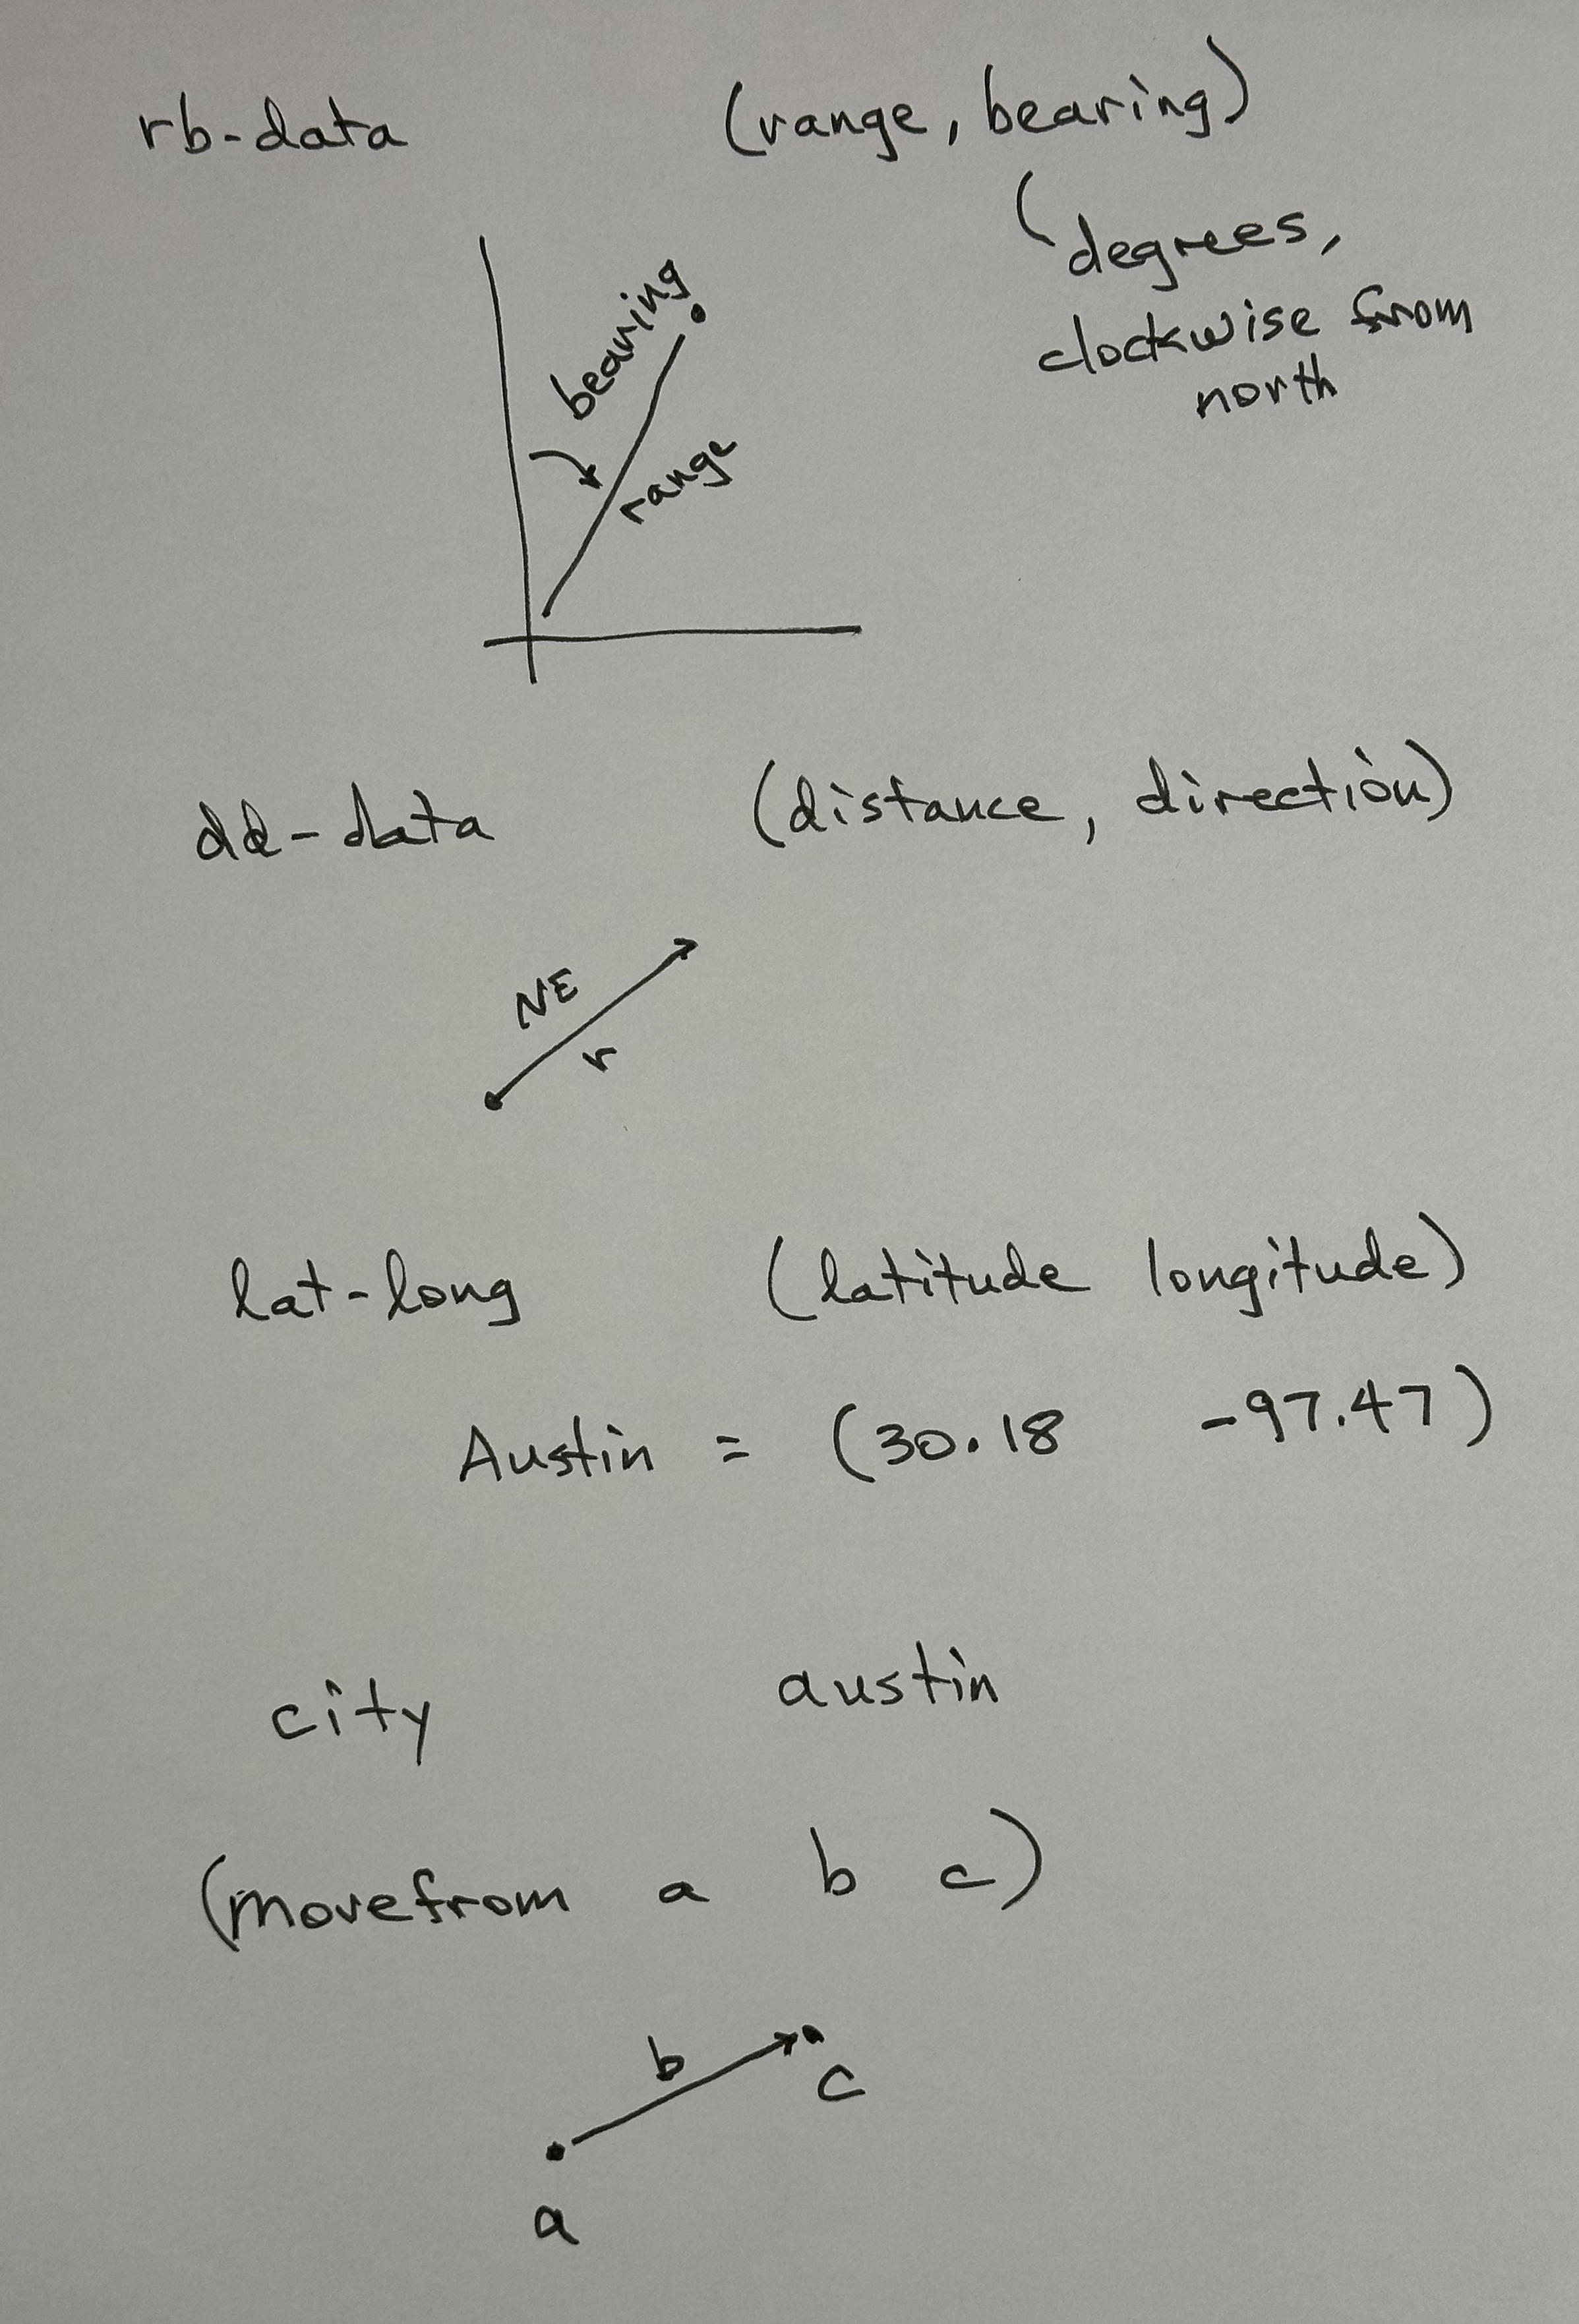 rb-data (range, bearing)
degrees,
clockwise from
north
bearing
range
dd-data (distance, direction)
NE
r
lat-long (latitude longitude)
Austin = (30.18 -97.47)
city austin
(movefrom a b c)
b
c
a